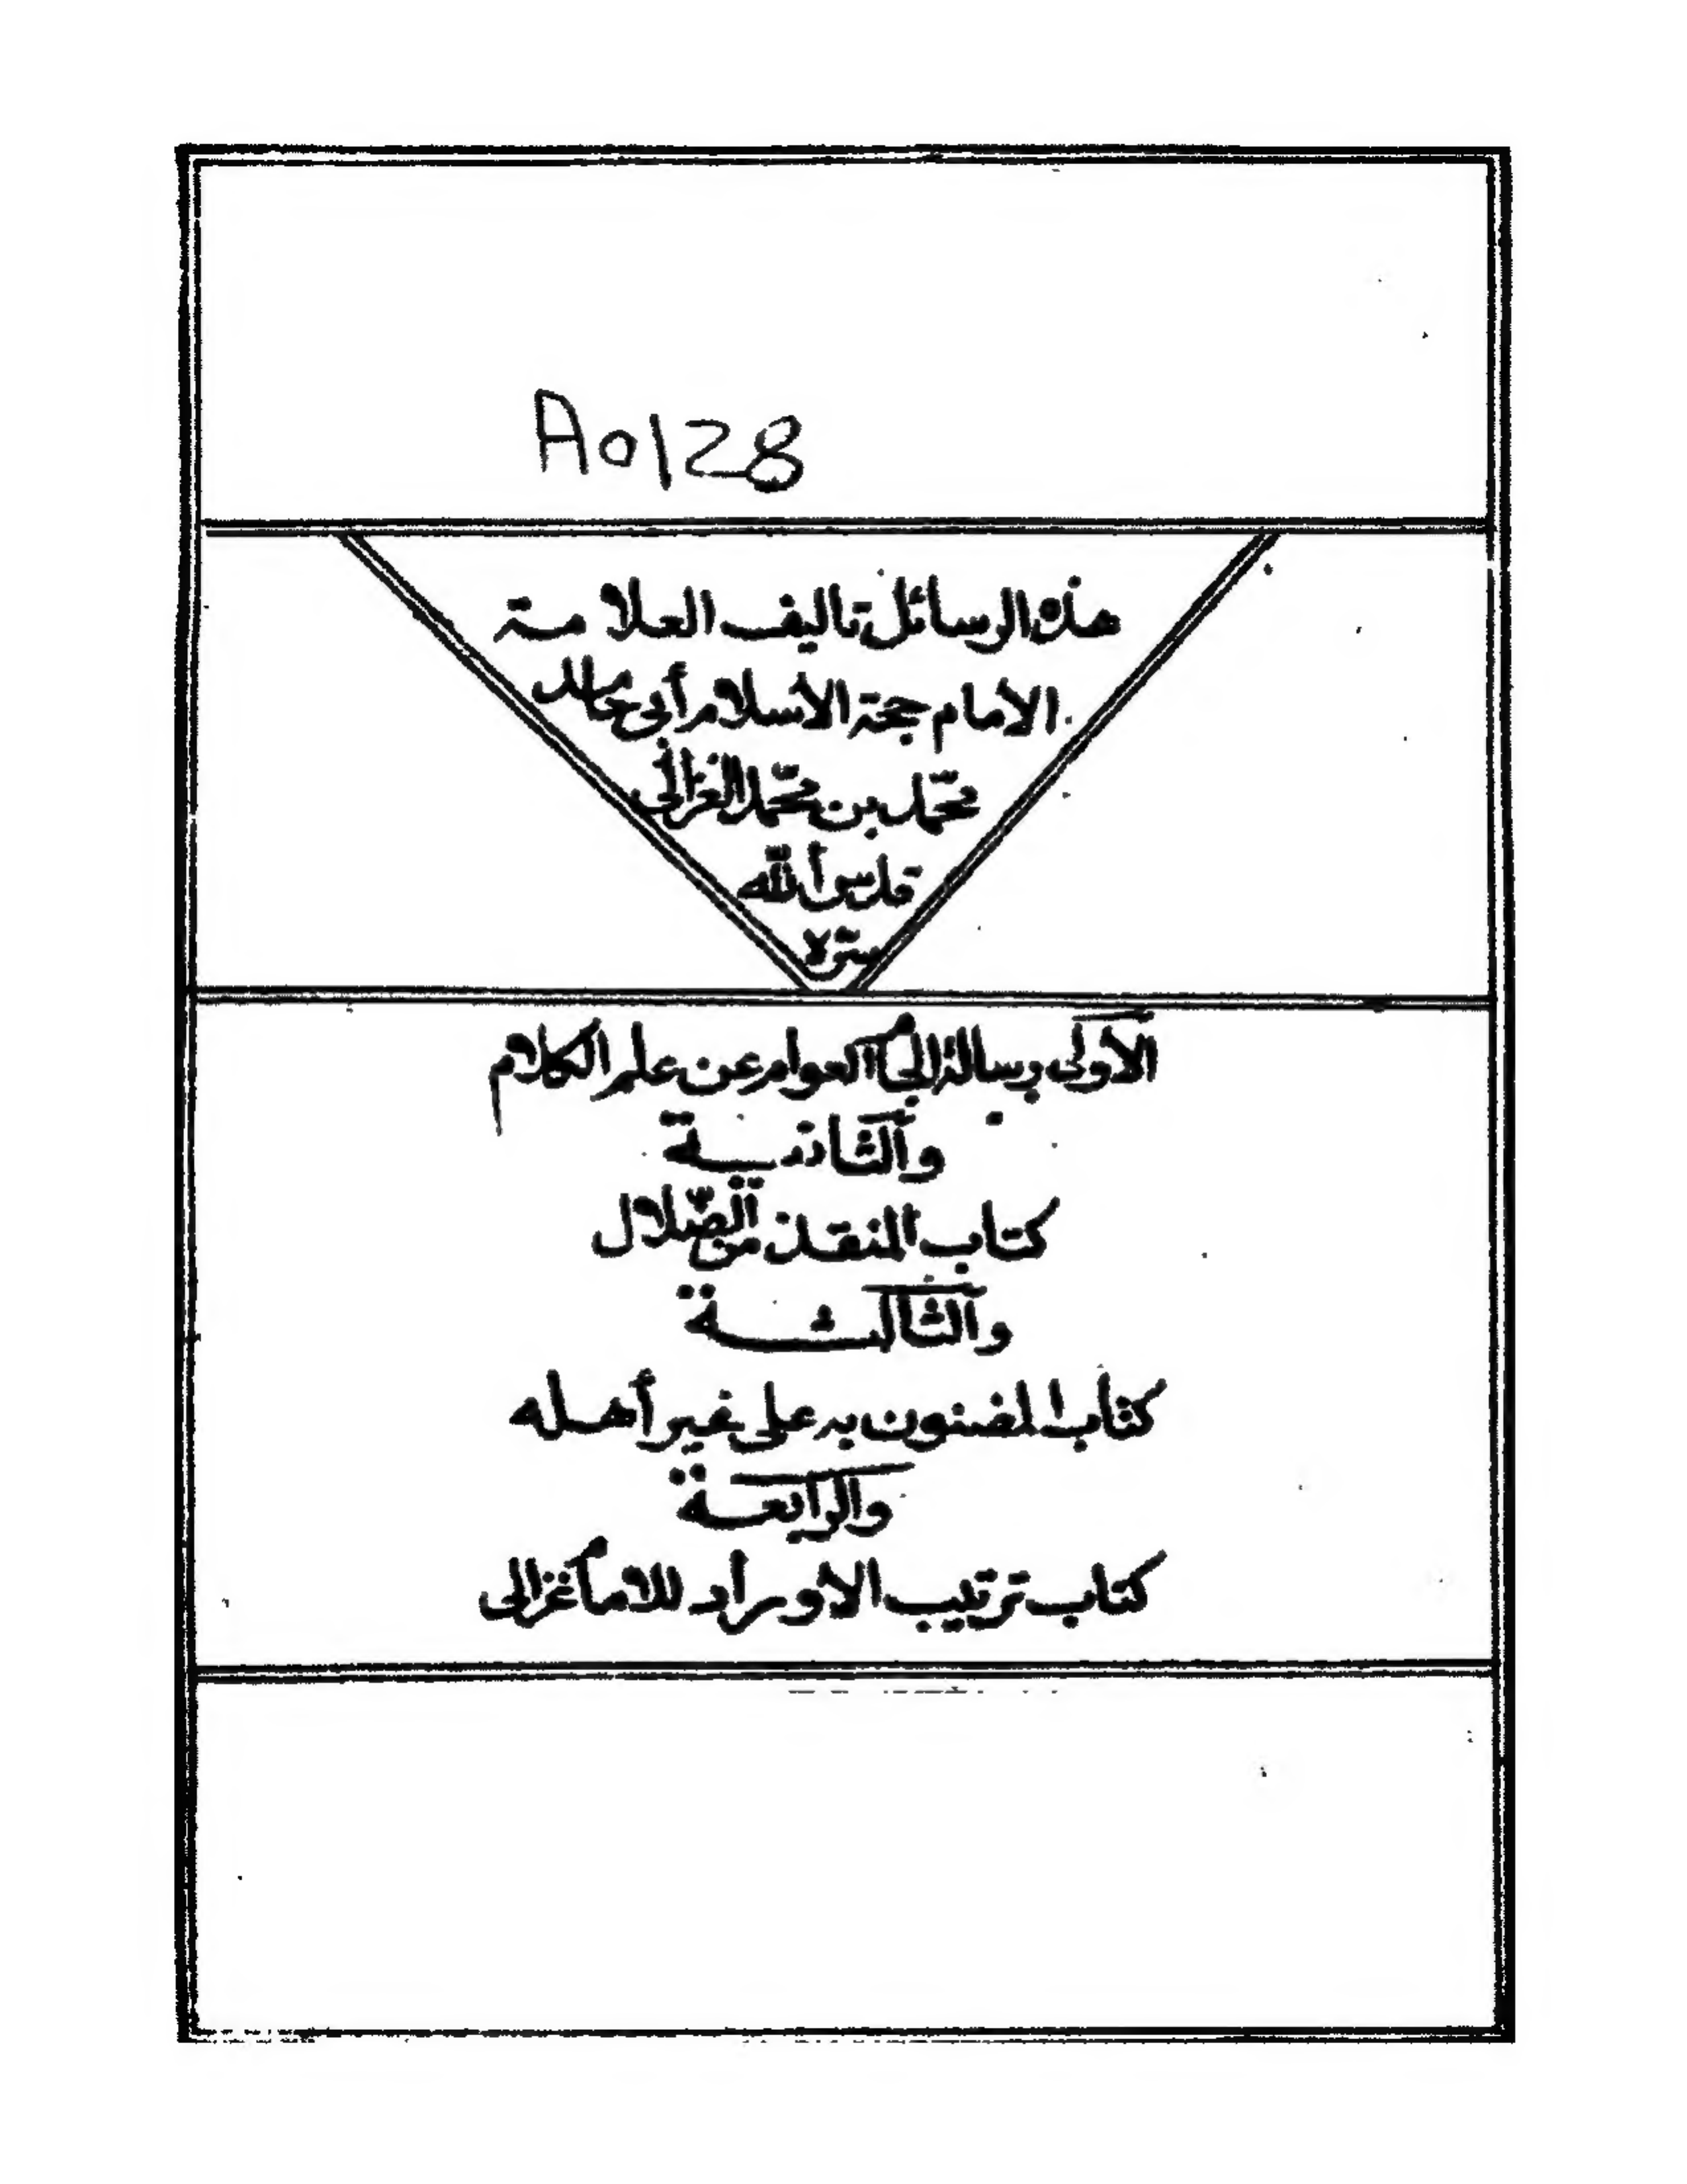 A0128
هذه الرسائل تاليف العلامة
الأمام حجة الأسلام أبى حامد
محمّد بن محمّد الغزالى
قدس الله
سرّه
الأولى رسالة إلجام العوام عن علم الكلام
والثانية
كتاب المنقذ من الضّلال
والثالثة
كتاب المضنون به على غير أهله
والرابعة
كتاب ترتيب الأوراد للامام غزالى